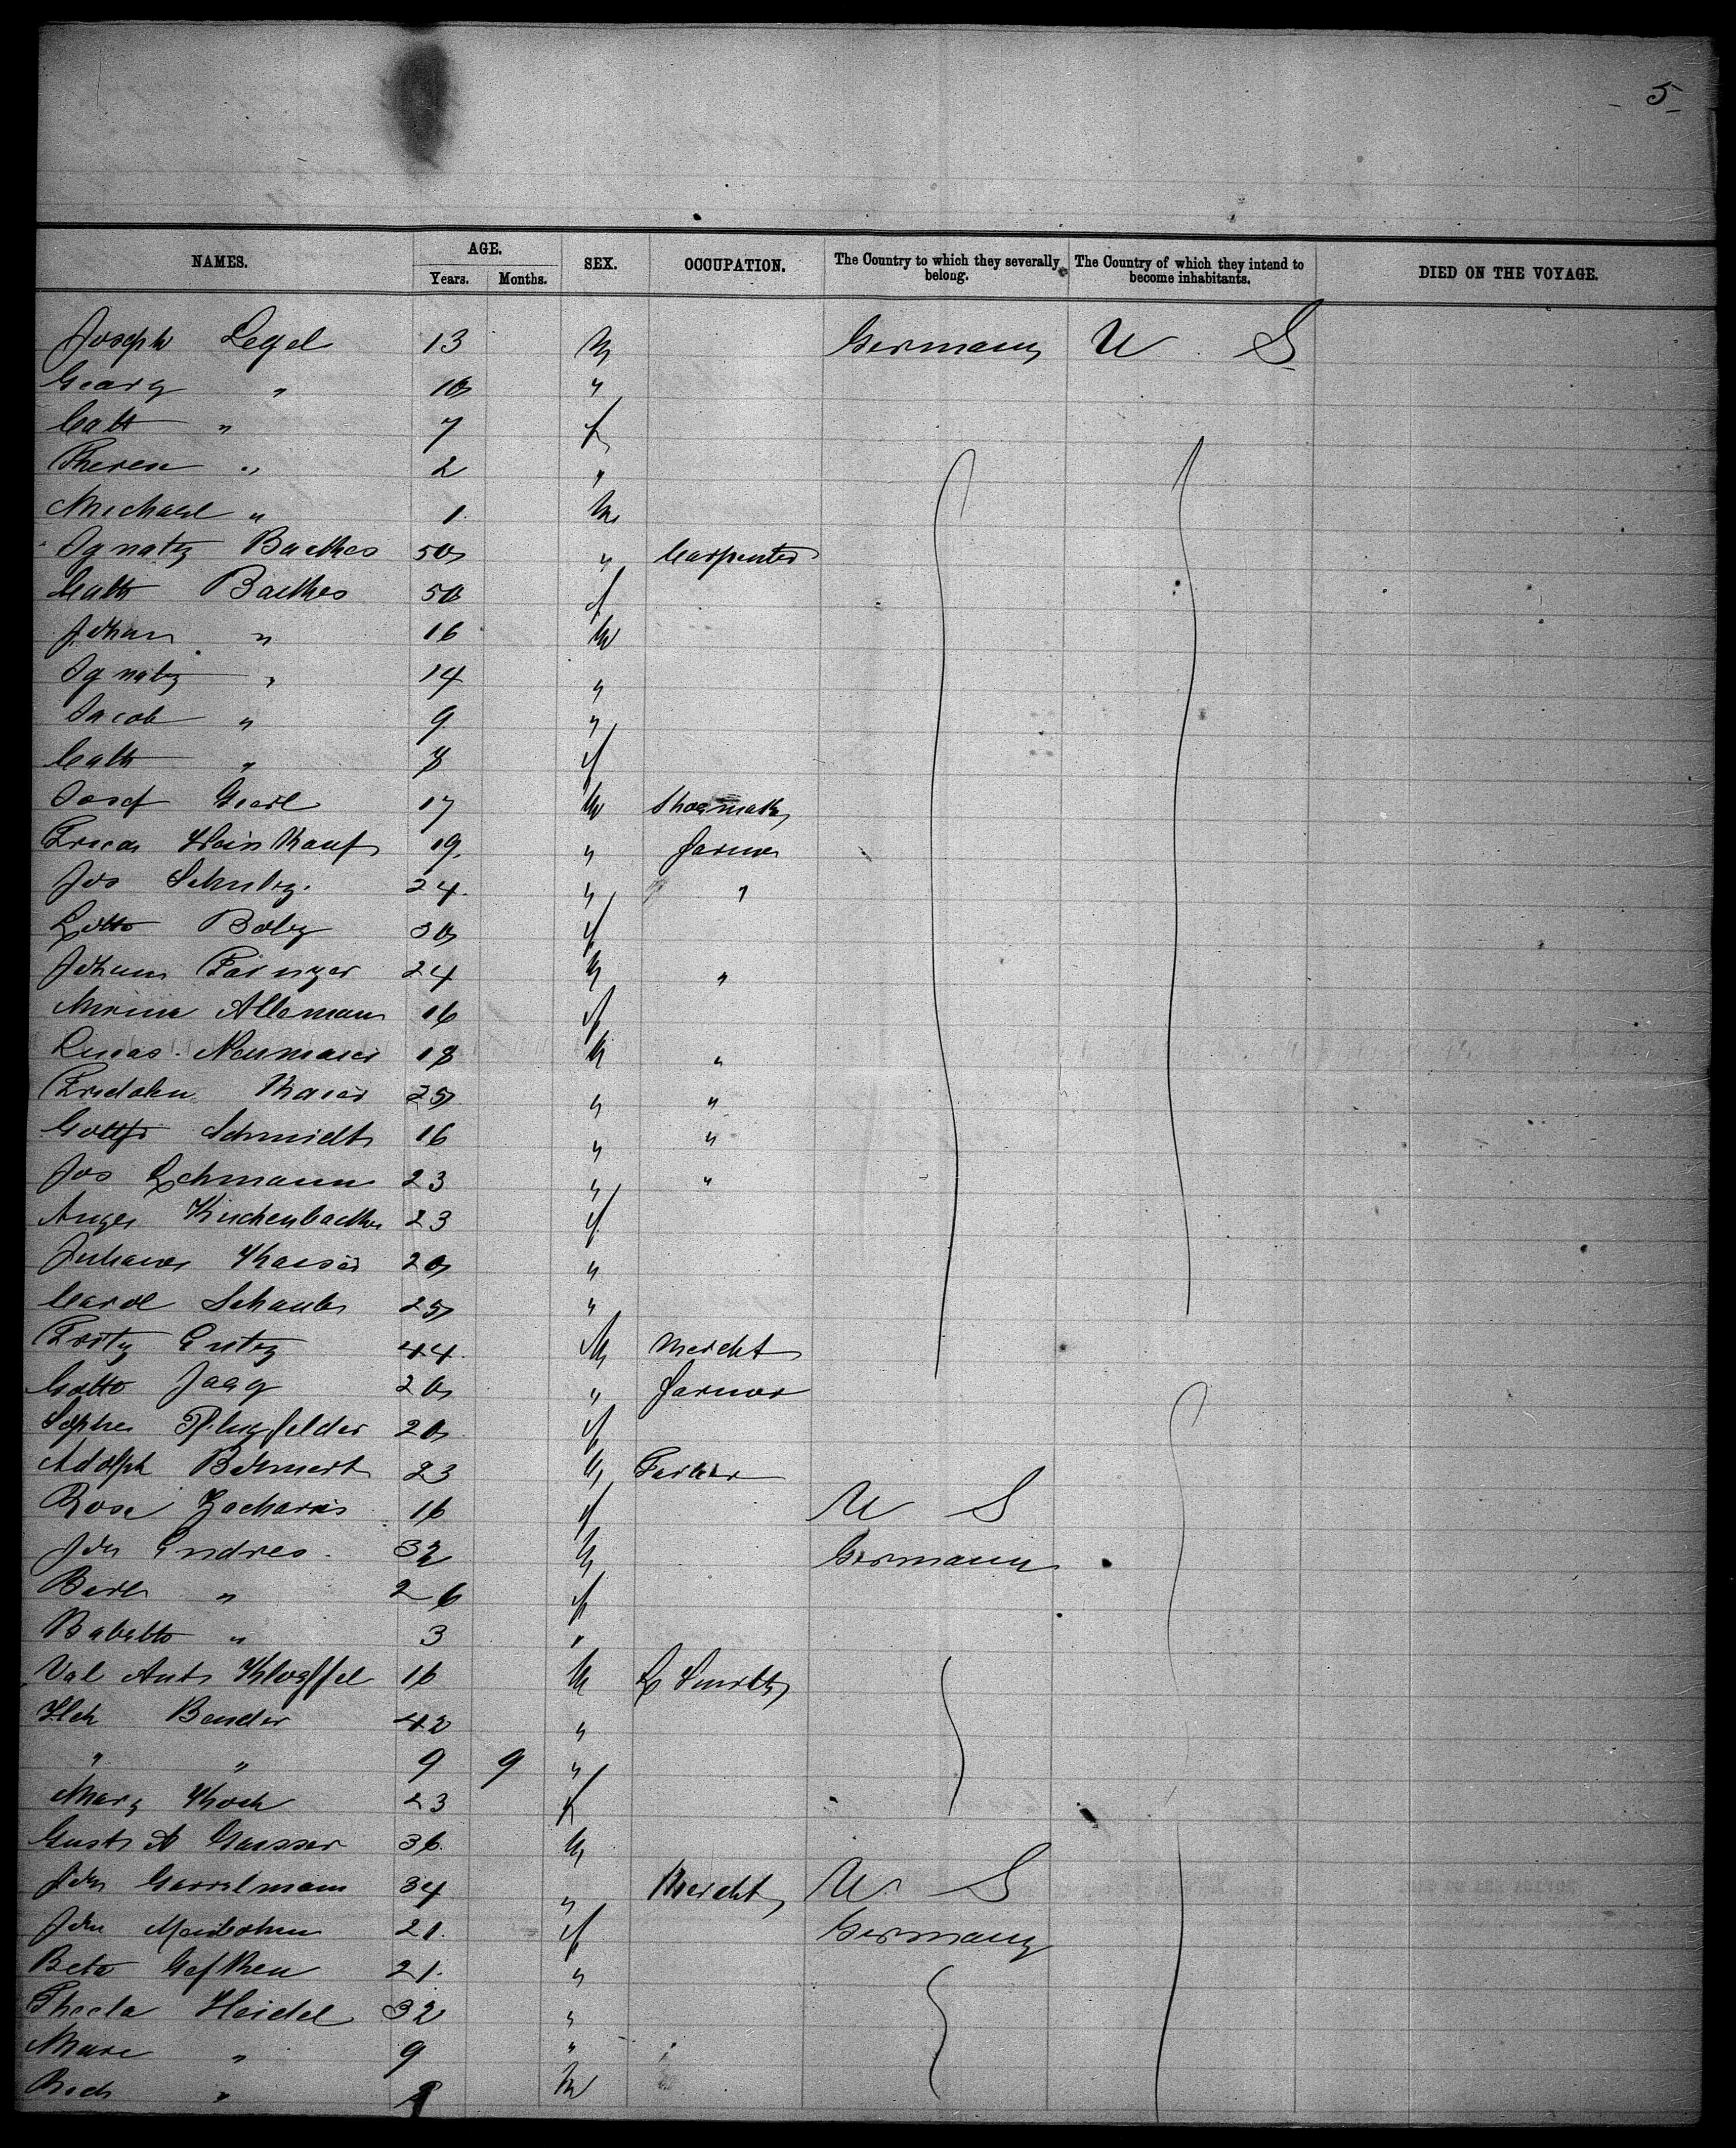 5
NAMES. AGE. Years. Months. SEX. OCCUPATION. The Country to which they severally belong. The Country of which they intend to become inhabitants. DIED ON THE VOYAGE.
Joseph Legel 13 M Germany U. S
Georg " 10 "
Cath " 7 f
Theresa " 2 "
Michael " 1 M
Ignatz Bacthes 50 " Carpenter
Cath Bacthes 50 f
Johan " 16 M
Ignatz " 14 "
Jacob " 9 "
Cath " 8 f
Josef 17 M Shoemak
19 " farmer
Jos Schultz 24 " "
Lotto Boltz 30 f
Johann 24 M "
Allemann 16 f
Lucas Neumaier 18 M "
Fridolin Kaiser 25 " "
Gottfr Schmidt 16 " "
Jos Lehmann 23 " "
Kuchenbacther 23 f
Kaiser 20 "
Carol Schaub 25 "
Fritz 44 M Mercht
Gotto Jaag 20 " farmer
Sophie Pflugfelder 20 f
Adolph 23 M
Rosa Zacharis 16 f U S
Joh Endres 32 M Germany
Barb " 26 f
Babetto " 3 "
Val Ant 16 M L Smith
Hch Bender 42 "
" " 9 9 "
Mary Koch 23 f
Gust A Gausser 36 M
Joh Garrelmann 34 " Mercht U. S
Joh Meibohm 21 f Germany
Beta Gefken 21 "
Thecla Heidel 32 "
Marie " 9 "
" M